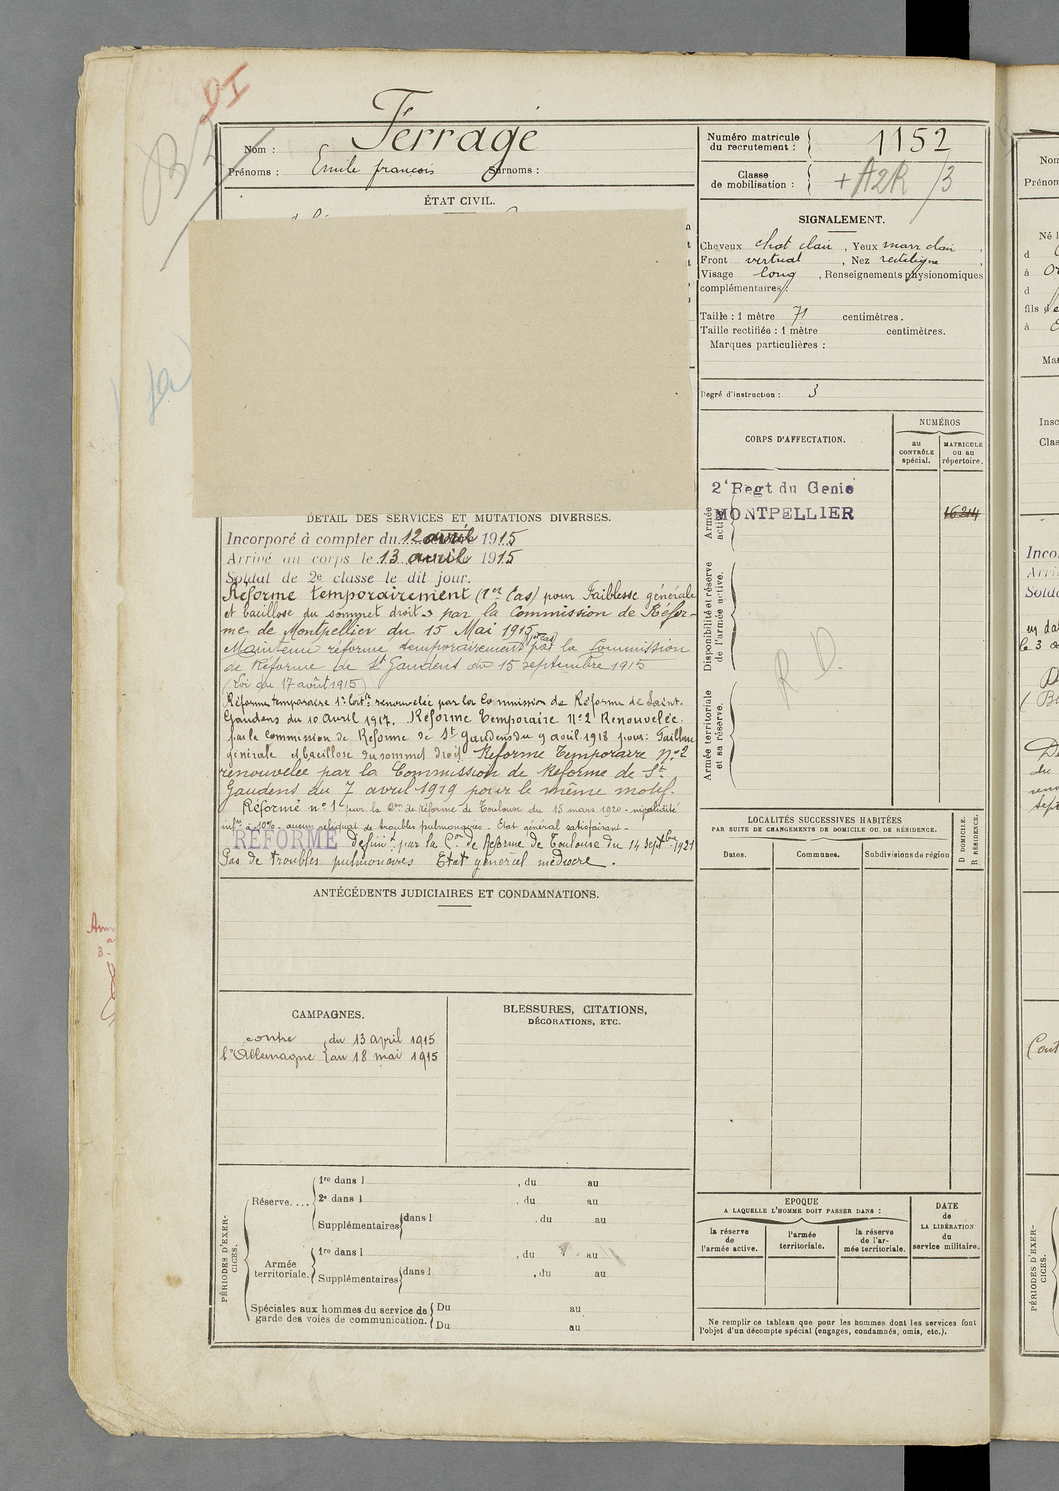 DI
B2
Nom :
Ferrage
Prénoms :
Emile françois
Surnoms :
Numéro matricule
du recrutement :
1152
Classe
de mobilisation :
+ A2R /3
ÉTAT CIVIL.
SIGNALEMENT.
Cheveux chat clair , Yeux marr clair ,
Front vertical , Nez rectiligne ,
Visage long , Renseignements physionomiques
complémentaires :
Taille : 1 mètre 71 centimètres.
Taille rectifiée : 1 mètre centimètres.
Marques particulières :
Degré d'instruction : 3
CORPS D'AFFECTATION.
NUMÉROS
au
CONTRÔLE
spécial.
MATRICULE
ou au
répertoire.
2e Regt du Genie
MONTPELLIER
16214
Armée
active.
Disponibilité et réserve
de l'armée active.
R D.
Armée territoriale
et sa réserve.
DÉTAIL DES SERVICES ET MUTATIONS DIVERSES.
Incorporé à compter du 12 avril 1915
Arrivé au corps le 13 avril 1915
Soldat de 2e classe le dit jour.
Réformé temporairement (1er Cas) pour Faiblesse générale
et bacillose du sommet droit par la Commission de Réfor-
me de Montpellier du 15 Mai 1915
Maintenu réformé temporairement (1er cas) par la Commission
de Réforme de St Gaudens du 15 septembre 1915
(Loi du 17 août 1915)
Réforme temporaire 1re Catie renouvelée par la Commission de Réforme de Saint.
Gaudens du 10 avril 1917. Réforme Temporaire No 2 Renouvelée.
par la Commission de Réforme de St Gaudens du 9 avril 1918 pour: Faiblesse
générale et bacillose du sommet droit Réforme Temporaire No 2
renouvelée par la Commission de Réforme de St
Gaudens du 7 avril 1919 pour le même motif.
Réformé no 1 par la Con de Réforme de Toulouse du 15 mars 1920 - invalidité
infre à 10% - aucun reliquat de troubles pulmonaires - Etat général satisfaisant -
RÉFORMÉ définit. par la Con de Réforme de Toulouse du 14 septbre 1921
Pas de troubles pulmonaires Etat général médiocre .
LOCALITÉS SUCCESSIVES HABITÉES
PAR SUITE DE CHANGEMENTS DE DOMICILE OU DE RÉSIDENCE.
Dates.
Communes.
Subdivisions de région
D DOMICILE.
R RÉSIDENCE.
ANTÉCÉDENTS JUDICIAIRES ET CONDAMNATIONS.
CAMPAGNES.
contre { du 13 april 1915
l'Allemagne { au 18 mai 1915
BLESSURES, CITATIONS,
DÉCORATIONS, ETC.
PÉRIODES D'EXER-
CICES.
Réserve....
1re dans l , du au
2e dans l . du au
Supplémentaires { dans l . du au
Armée
territoriale.
1re dans l , du au
Supplémentaires { dans l , du au
Spéciales aux hommes du service de
garde des voies de communication.
Du au
Du au
EPOQUE
A LAQUELLE L'HOMME DOIT PASSER DANS :
la réserve
de
l'armée active.
l'armée
territoriale.
la réserve
de l'ar-
mée territoriale.
DATE
de
LA LIBÉRATION
du
service militaire.
Ne remplir ce tableau que pour les hommes dont les services font
l'objet d'un décompte spécial (engagés, condamnés, omis, etc.).
Nom
Prénom
Né l
d
à
d
fils
à
Mar
Insc
Clas
Inco
Arri
Solda
PÉRIODES D'EXER-
CICES.